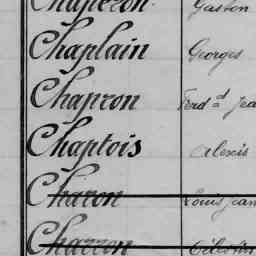 Chaperon Gaston
Chaplain Georges
Chapron Ferd^d Jea
Chaptois Alexis
Charon Louis Jean
Charron Célestin